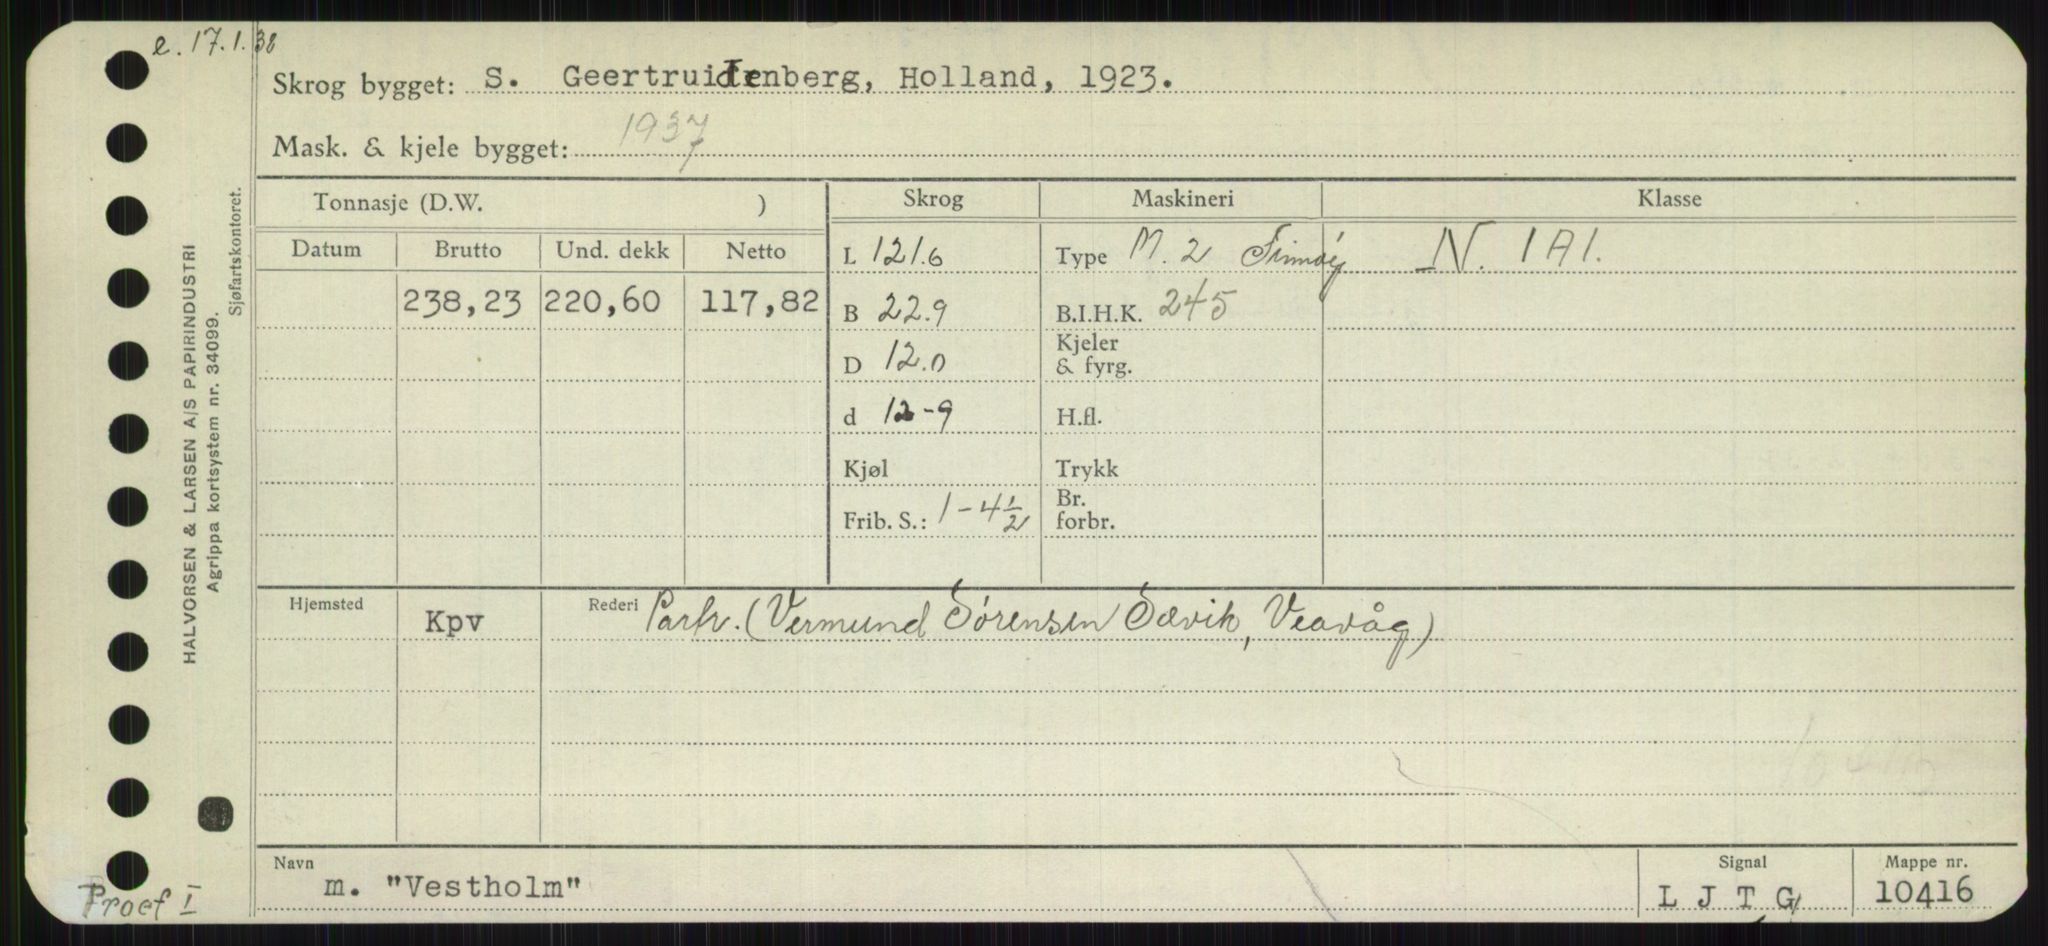 e. 17.1.38
Skrog bygget: S. Geertruidenberg, Holland, 1923.
Mask. & kjele bygget: 1937
Tonnasje (D.W. ) Skrog Maskineri Klasse
Datum Brutto Und. dekk Netto L 121.6 Type M. 2 Finnøy N. 1A1.
238,23 220,60 117,82 B 22.9 B.I.H.K. 245
D 12.0 Kjeler & fyrg.
d 12-9 H.fl.
Kjøl Trykk
Frib. S.: 1-4½ Br. forbr.
Hjemsted Kpv Rederi Partr. (Vermund Sørensen Sævik, Veavåg)
Navn m. "Vestholm" Signal L J T G Mappe nr. 10416
Proef I
HALVORSEN & LARSEN A/S PAPIRINDUSTRI
Agrippa kortsystem nr. 34099.
Sjøfartskontoret.